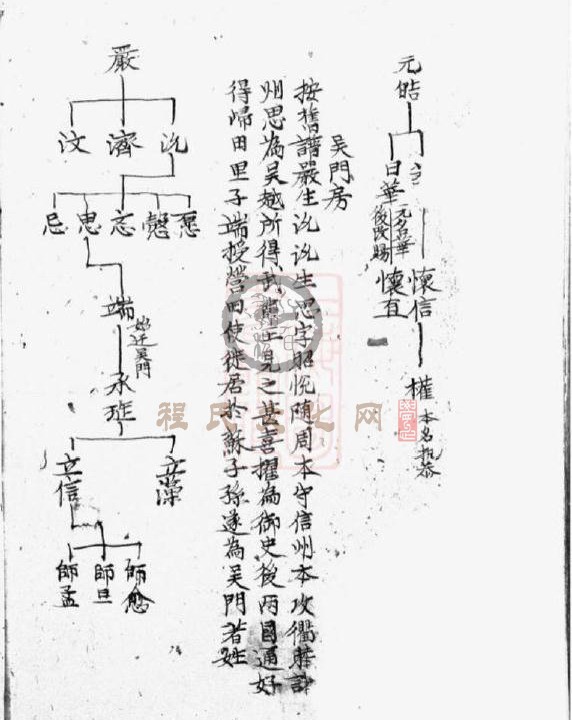 元皓
日華
懷信
懷直
權 本名扎恭
吳門房
按舊譜嚴生沇沇生思字昭悅隨周本守信州本攻衢
州思為吳越所得武肅王見之甚喜擢為御史後兩國通好
得歸田里子端授營田使徙居於蘇子孫遂為吳門著姓
嚴
沇 濟 汶
忘 思 忌
端 始迁吳門
承
立信
師旦 師孟
程氏文化网